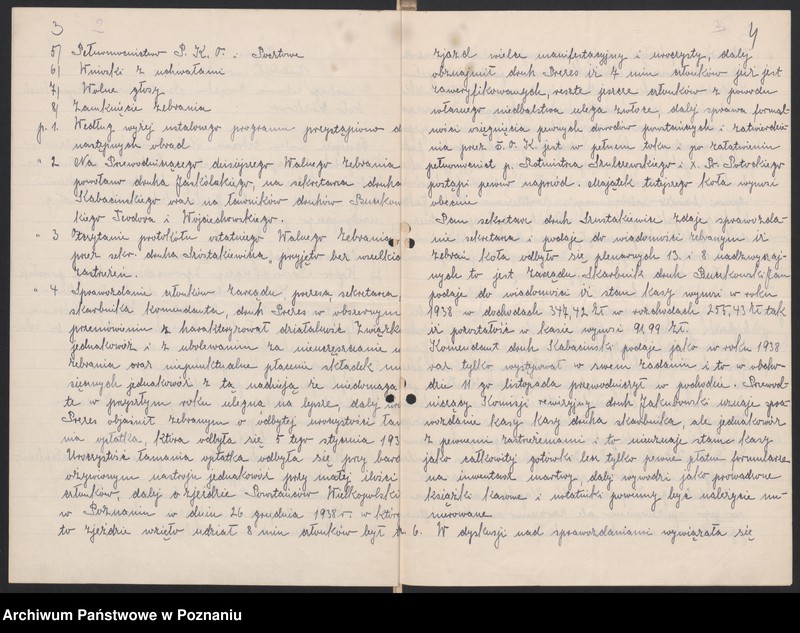 3
5/ Pełnomocnictwo P. K. O. i Pocztowe
6/ Wnioski z uchwałami
7/ Wolne głosy
8/ Zamknięcie zebrania
p. 1. Według wyżej ustalonego programu przystąpiono d
następnych obrad
" 2 Na Przewodniczącego dzisiejszego Walnego zebrania
powołano druha Jaskólskiego, na sekretarza druha
Kabacinskiego oraz na ławników druhów
kiego Teodora i Wojciechowskiego.
" 3 Odczytanie protokółu ostatniego Walnego Zebrania
przez sekr. druha przyjęto bez wszelkich
zastrzeżeń.
" 4 Sprawozdanie członków zarządu prezesa, sekretarza,
skarbnika komendanta, druh Prezes w obszernym
przemówieniu z harakteryzował działalność Związk
jednakowóż i z ubolewaniem za nieuczęszczanie
zebrania oraz niepunktualne płacenie składek mie
sięcznych jednakowóż z tą nadzieją że niedomaga
te w przyszłym roku ulegną na lepsze, dalej
Prezes objaśnił zebranym o odbytej uroczystości łam
nia opłatka, która odbyła się 5 tego stycznia 193
Uroczystość łamania opłatka odbyła się przy bard
ożywionym nastroju jednakowóż przy małej ilości
członków, dalej o zjeździe Powstańców Wielkopolski
w Poznaniu w dniu 26 grudnia 1938 r. w któr
to zjeździe wzięło udział 8 miu członków był
4
zjazd wielce manifestacyjny i uroczysty, dalej
oznajmił druh Prezes iż 7 miu członków już jest
zaweryfikowanych, reszta jeszcze członków z powodu
własnego niedbalstwa ulega zwłoce, dalej sprawa formal-
ności osięgnięcia pewnych dowodów powstańczych i zatwierdze-
nia przez O. K. jest w pełnem toku i po załatwieniu
pełnomocnict p. Rotmistrza i X. Pr. Potockiego
postąpi pewno naprzód. Majątek tutejszego koła wynosi
obecnie
Pan sekretarz druh zdaje sprawozda-
nie sekretarza i podaje do wiadomości zebranym iż
zebrań koła odbyło się plenarnych 13. i 8 nadzwyczaj-
nych to jest zarządu. Skarbnik druh Buszkowski Jan
podaje do wiadomości iż stan kasy wynosi w roku
1938 w dochodach 347,42 zł w rozchodach 255,43 zł tak
iż pozostałość w kasie wynosi 91,99 zł.
Komendant druh Kabacinski podaje jako w roku 1938
raz tylko występował w swem zadaniu i to w obcho-
dzie 11 go listopada przewodniczył w pochodzie. Przewod-
niczący Komisji rewizyjnej druh Jakubowski uznaje spra-
wozdanie kasy kasy druha skarbnika, ale jednakowóż
z pewnemi zastrzeżeniami i to nieuznaje stanu kasy
jako całkowitej gotówki lecz tylko pewne płatne formularze
na inwentarz martwy, dalej wywodzi jako prowadzone
książki kasowe i notatniki powinny być należycie nu-
merowane.
p. 6. W dyskusji nad sprawozdaniami wywiązała się
Archiwum Państwowe w Poznaniu